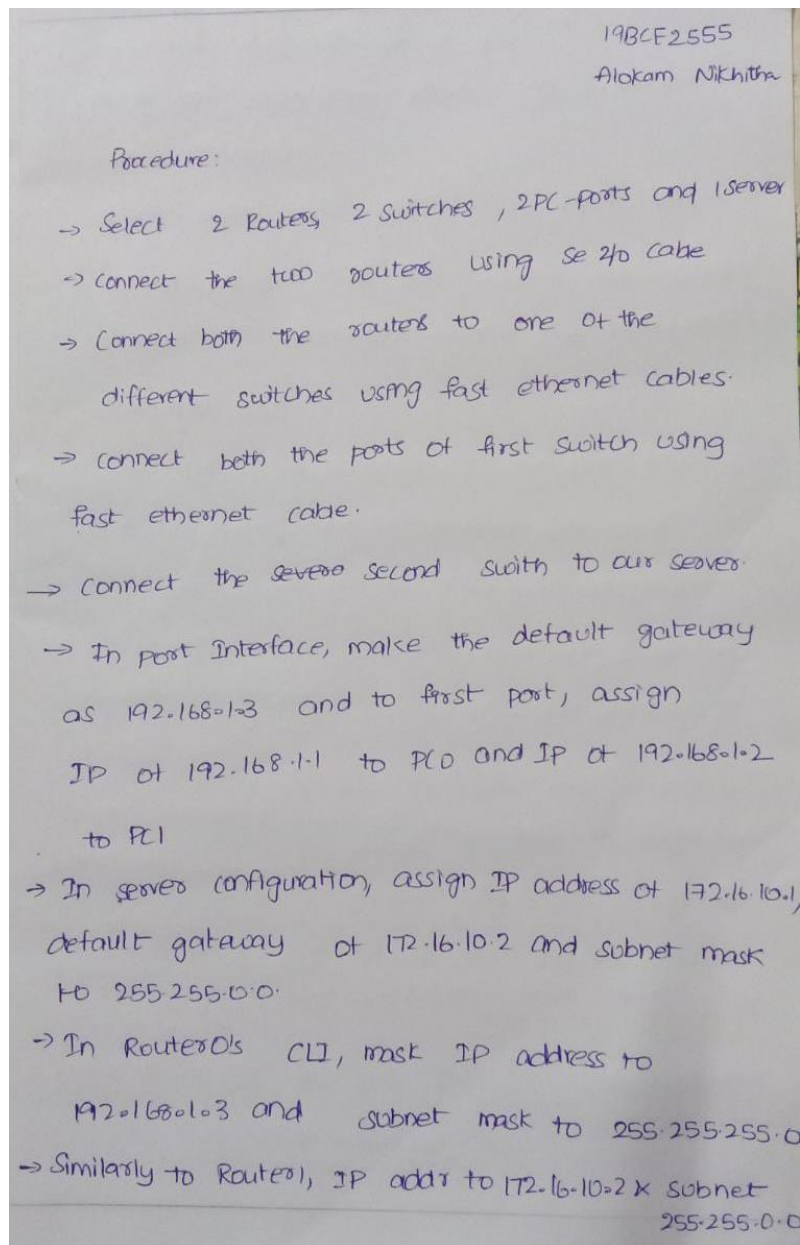 19BCF2555
Alokam Nikhitha
Procedure:
→ Select 2 Routers, 2 Switches, 2PC-ports and 1server
→ connect the two routers using se 2/0 cabe
→ Connect both the routers to one of the
different switches using fast ethernet cables.
→ connect both the ports of first switch using
fast ethernet cable.
→ connect the second swith to our server.
→ In port Interface, make the default gateway
as 192.168.1.3 and to first port, assign
IP of 192.168.1.1 to PC0 and IP of 192.168.1.2
to PC1
→ In server configuration, assign IP address of 172.16.10.1,
default gateway of 172.16.10.2 and subnet mask
to 255.255.0.0.
→ In Router0's CLI, mask IP address to
192.168.1.3 and subnet mask to 255.255.255.0
→ Similarly to Router1, IP addr to 172.16.10.2 & subnet
255.255.0.0